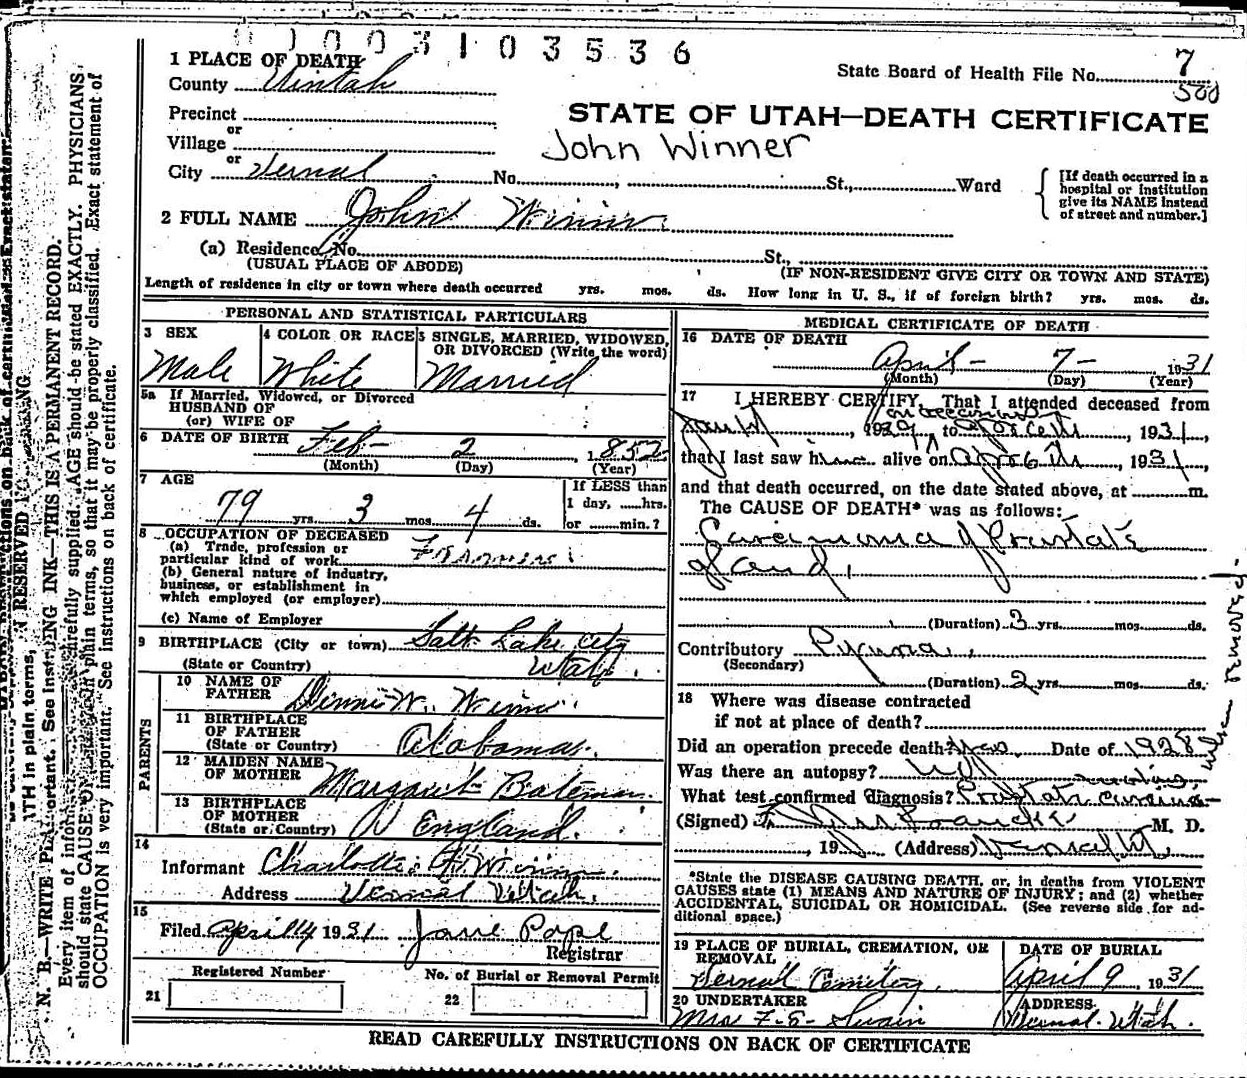 0 1 0 0 3 1 0 3 5 3 6
1 PLACE OF DEATH
County Uintah
State Board of Health File No. 7
500
Precinct
or
Village
STATE OF UTAH—DEATH CERTIFICATE
John Winner
or
City Vernal No. , St., Ward
[If death occurred in a
hospital or institution
give its NAME instead
of street and number.]
2 FULL NAME John Winner
(a) Residence, No. St.,
(USUAL PLACE OF ABODE) (IF NON-RESIDENT GIVE CITY OR TOWN AND STATE)
Length of residence in city or town where death occurred yrs. mos. ds. How long in U. S., if of foreign birth? yrs. mos. ds.
PERSONAL AND STATISTICAL PARTICULARS
3 SEX 4 COLOR OR RACE 5 SINGLE, MARRIED, WIDOWED,
OR DIVORCED (Write the word)
Male White Married
5a If Married, Widowed, or Divorced
HUSBAND OF
(or) WIFE OF
6 DATE OF BIRTH Feb- 2 1852
(Month) (Day) (Year)
7 AGE
If LESS than
1 day, ......hrs.
79 yrs. 3 mos. 4 ds. or ........min.?
8 OCCUPATION OF DECEASED
(a) Trade, profession or
particular kind of work
(b) General nature of industry,
business, or establishment in
which employed (or employer)
(c) Name of Employer
9 BIRTHPLACE (City or town) Salt Lake City
(State or Country) Utah.
PARENTS
10 NAME OF
FATHER W. Winner
11 BIRTHPLACE
OF FATHER
(State or Country) Alabama.
12 MAIDEN NAME
OF MOTHER Margaret Bateman.
13 BIRTHPLACE
OF MOTHER
(State or Country) England.
14
Informant Charlotte Winner.
Address Vernal Utah.
15
Filed April 14 1931 Jane Pope
Registrar
Registered Number No. of Burial or Removal Permit
21 22
MEDICAL CERTIFICATE OF DEATH
16 DATE OF DEATH
April- 7- 1931
(Month) (Day) (Year)
17 I HEREBY CERTIFY, That I attended deceased from
on occasionally
, 1929, to , 1931,
that I last saw him alive on Apr 6 th, 1931,
and that death occurred, on the date stated above, at m.
The CAUSE OF DEATH* was as follows:
Carcinoma of Prostate
gland.
(Duration) 3 yrs. mos. ds.
Contributory
(Secondary)
(Duration) 2 yrs. mos. ds.
18 Where was disease contracted
if not at place of death?
Did an operation precede death? Yes Date of 1928
Was there an autopsy?
What test confirmed diagnosis? Prostate
when removed.
(Signed) M. D.
, 19 (Address) Vernal Ut.
*State the DISEASE CAUSING DEATH, or, in deaths from VIOLENT
CAUSES state (1) MEANS AND NATURE OF INJURY; and (2) whether
ACCIDENTAL, SUICIDAL OR HOMICIDAL. (See reverse side for ad-
ditional space.)
19 PLACE OF BURIAL, CREMATION, OR
REMOVAL
Vernal Cemetery.
DATE OF BURIAL
April 9, 1931
20 UNDERTAKER
Mrs F-S- Swain
ADDRESS
Vernal-Utah.
READ CAREFULLY INSTRUCTIONS ON BACK OF CERTIFICATE
N. B.—WRITE PLAINLY, INK—THIS IS A PERMANENT RECORD.
Every item of information carefully supplied. AGE should be stated EXACTLY. PHYSICIANS
should state CAUSE OF plain terms, so that it may be properly classified. Exact statement of
OCCUPATION is very important. See instructions on back of certificate.